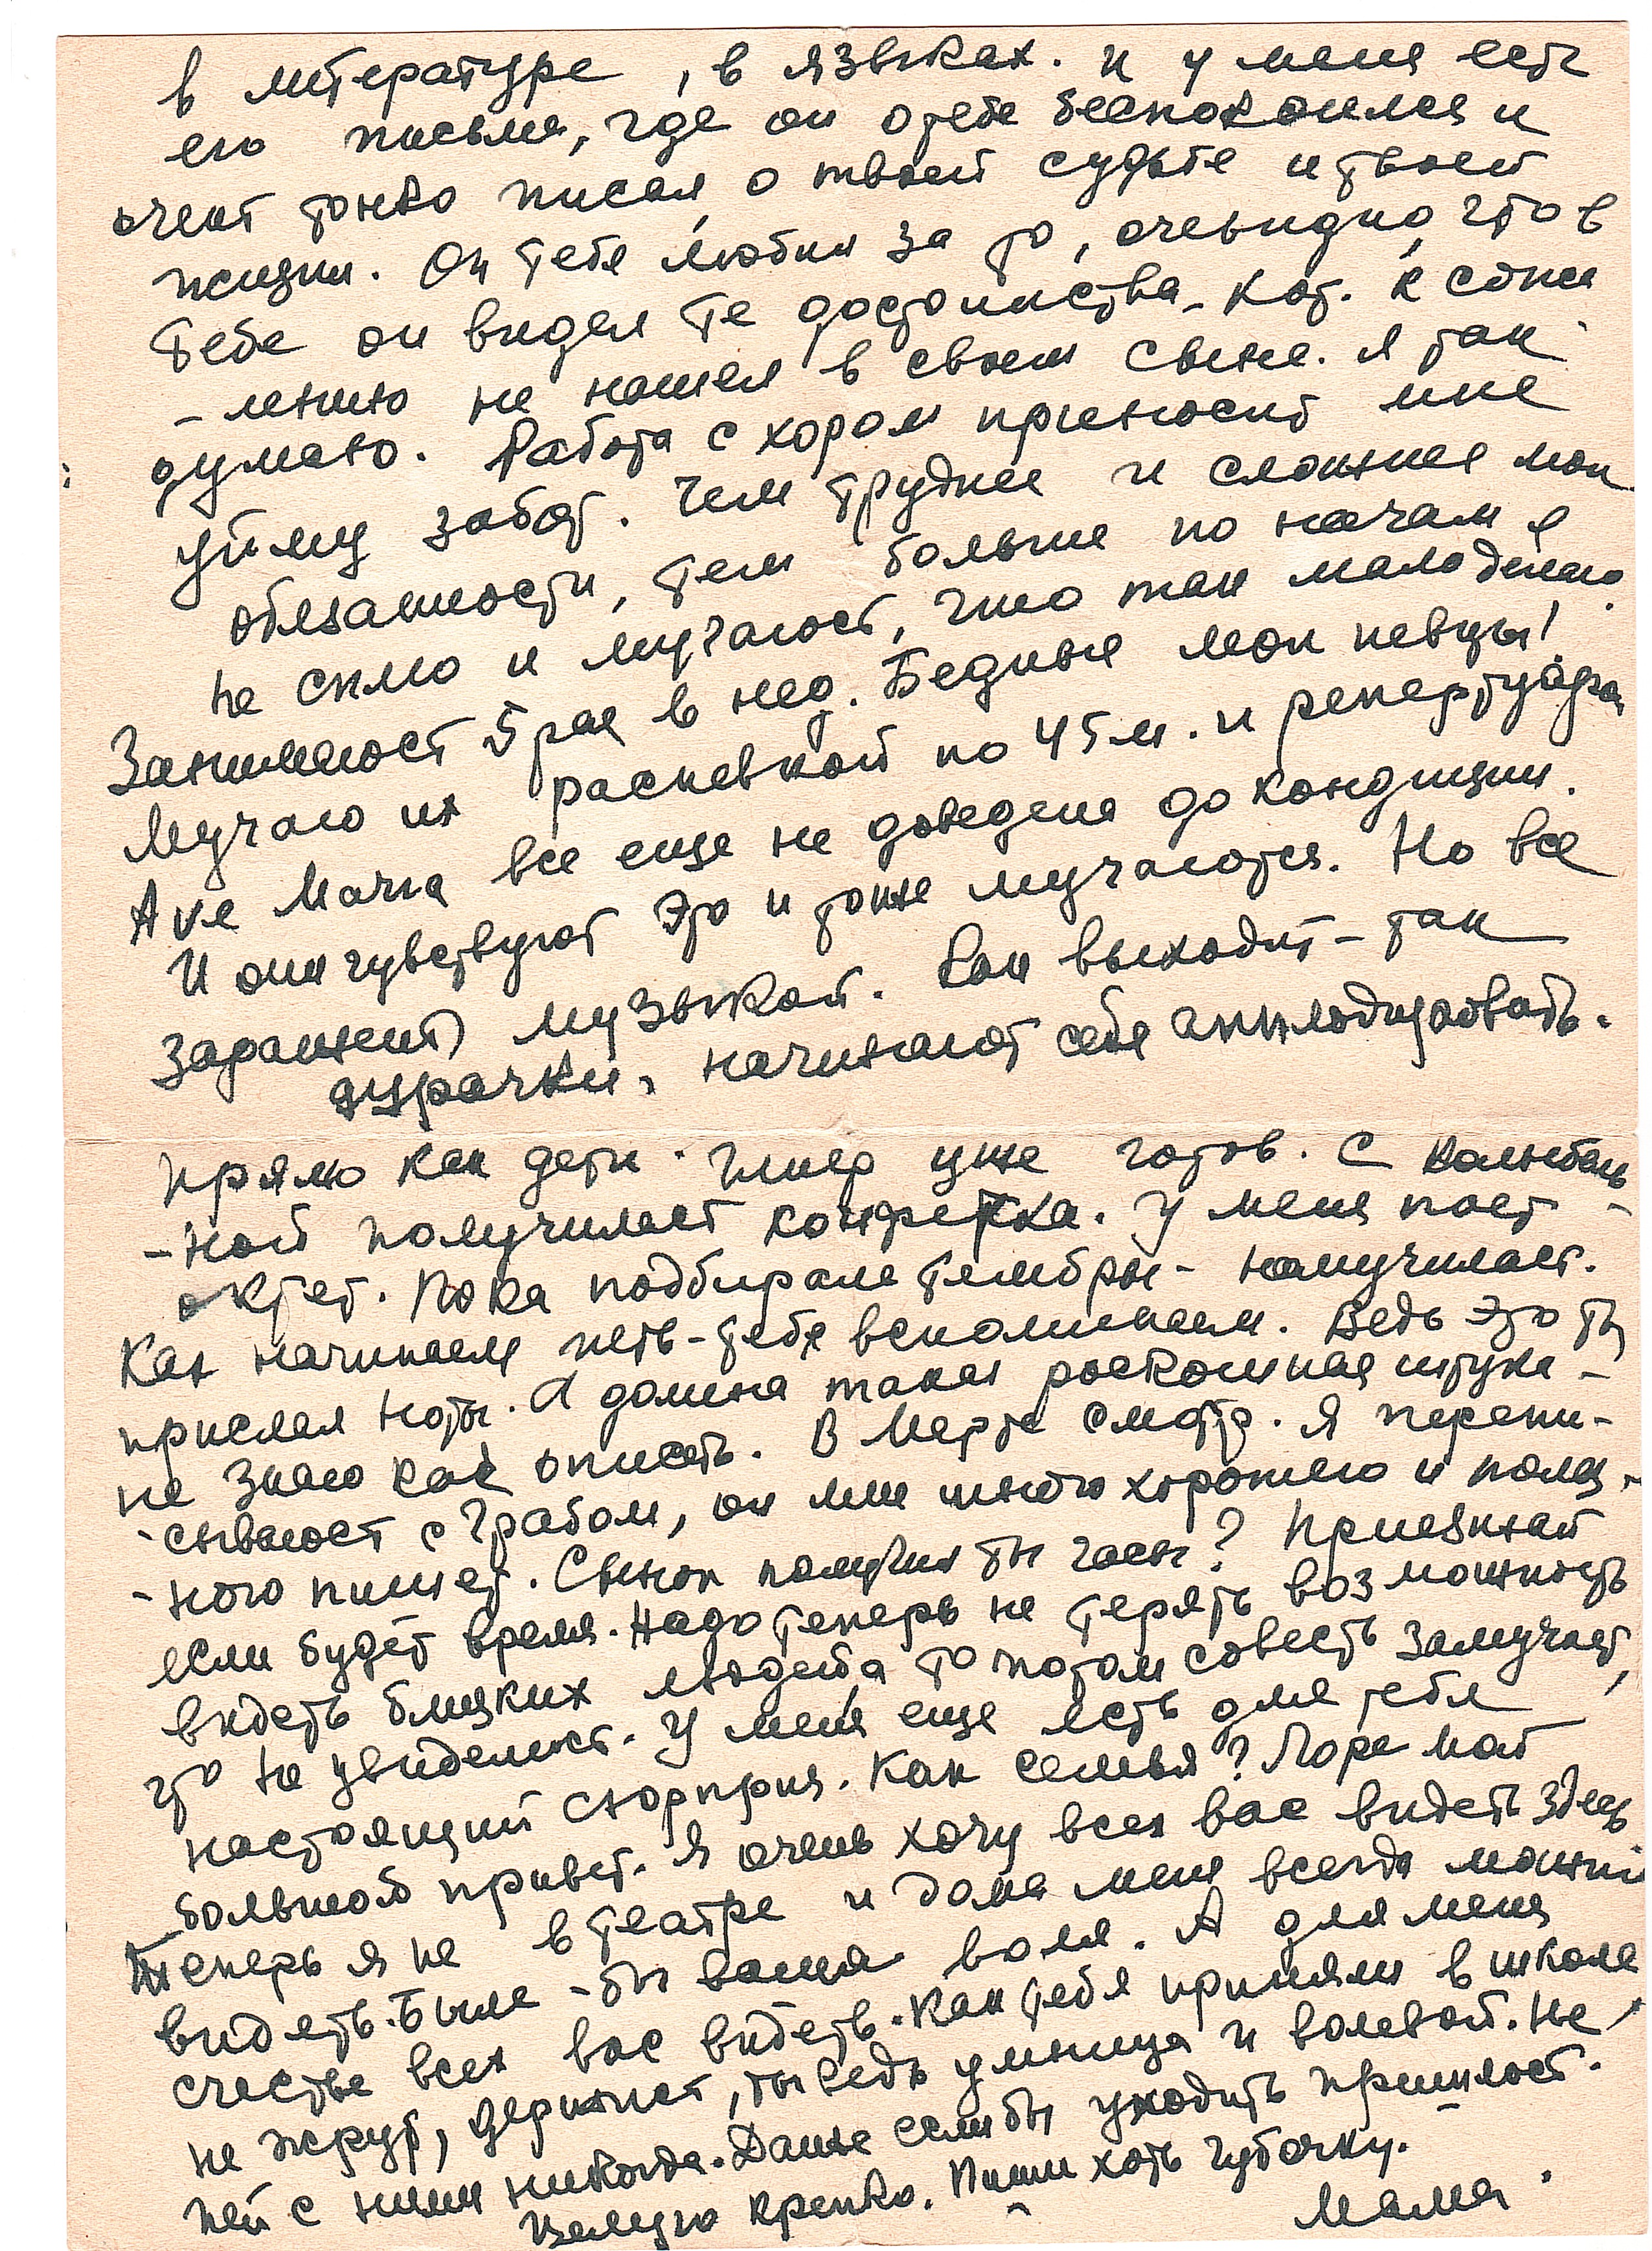 в литературе, в языках. И у меня есть
его письма, где он о тебе беспокоился и
очень тонко писал о твоей судьбе и твоей
жизни. Он тебя любил за то, очевидно, что в
тебе он видел те достоинства, кот. к сожа
-лению не нашел в своем сыне. Я так
думаю. Работа с хором приносит мне
уйму забот. Чем труднее и сложнее мои
обязанности, тем больше по ночам я
не сплю и мучаюсь, что так мало делаю.
Занимаюсь 5 раз в нед. Бедные мои певцы!
Мучаю их распевкой по 45 м. и репертуара
Ave Maria все еще не доведена до кондиции.
И они чувствуют это и тоже мучаются. Но все
заражены музыкой. Как выходит - так
дурачки, начинают себе аплодировать.
Прямо как дети. уже готов. С колыбель
-ной получилась конфетка. У меня поет -
октет. Пока подбирала тембры - намучилась.
Как начинаем петь - тебя вспоминаем. Ведь это ты
прислал ноты. А домина такая роскошная штука -
не знаю как описать. В Марте смотр. Я перепи-
-сываюсь с Грабом, он мне много хорошего и полез-
-ного пишет. Сынок получил ты часы? Приезжай
если будет время. Надо теперь не терять возможность
видеть близких людей, а то потом совесть замучает,
что не увиделись. У меня еще есть для тебя
настоящий сюрприз. Как семья? Ларе мой
большой привет. Я очень хочу всех вас видеть здесь
Теперь я не в театре и дома меня всегда можно
видеть. Была-бы ваша воля. А для меня
счастье всех вас видеть. Как тебя приняли в школе
не жрут, держись, ты ведь умница и волевой. Не
пей с ними никогда. Даже если бы уходить пришлось.
Целую крепко. Пиши хоть чуточку.
Мама.